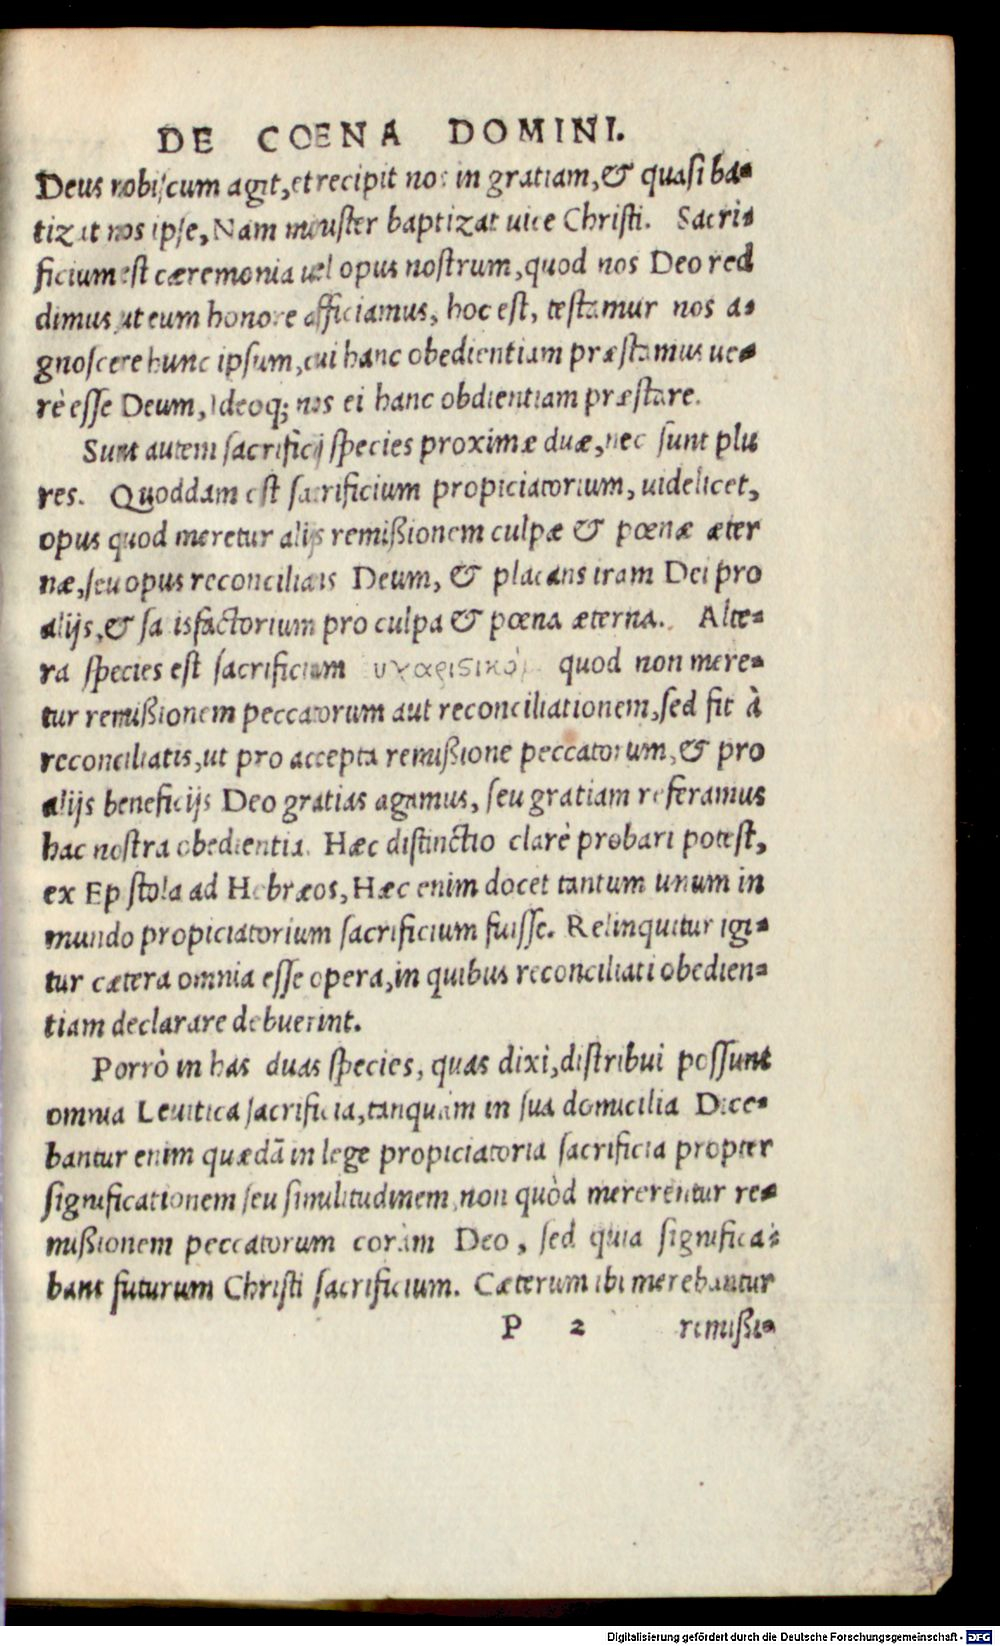 DE COENA DOMINI.
Deus nobiscum agit, et recipit nos in gratiam, & quasi ba-
tizat nos ipse, Nam minister baptizat uice Christi. Sacri-
ficium est cæremonia uel opus nostrum, quod nos Deo red
dimus ut eum honore afficiamus, hoc est, testamur nos a-
gnoscere hunc ipsum, cui hanc obedientiam præstamus ue-
rè esse Deum, Ideoq; nos ei hanc obdientiam præstare.
Sunt autem sacrificij species proximæ duæ, nec sunt plu
res. Quoddam est sacrificium propiciatorium, uidelicet,
opus quod meretur alijs remißionem culpæ & pœnæ æter
næ, seu opus reconcilians Deum, & placans iram Dei pro
alijs, & satisfactorium pro culpa & pœna æterna. Alte-
ra species est sacrificium υχαριϛικόν quod non mere-
tur remißionem peccatorum aut reconciliationem, sed fit à
reconciliatis, ut pro accepta remißione peccatorum, & pro
alijs beneficijs Deo gratias agamus, seu gratiam referamus
hac nostra obedientia. Hæc distinctio clarè probari potest,
ex Epistola ad Hebræos, Hæc enim docet tantum unum in
mundo propiciatorium sacrificium fuisse. Relinquitur igi-
tur cætera omnia esse opera, in quibus reconciliati obedien-
tiam declarare debuerint.
Porrò in has duas species, quas dixi, distribui possunt
omnia Leuitica sacrificia, tanquam in sua domicilia Dice-
bantur enim quædā in lege propiciatoria sacrificia propter
significationem seu similitudinem, non quòd mererentur re-
mißionem peccatorum coràm Deo, sed quia significa-
bant futurum Christi sacrificium. Cæterum ibi merebantur
P 2 remißi-
Digitalisierung gefördert durch die Deutsche Forschungsgemeinschaft - DFG